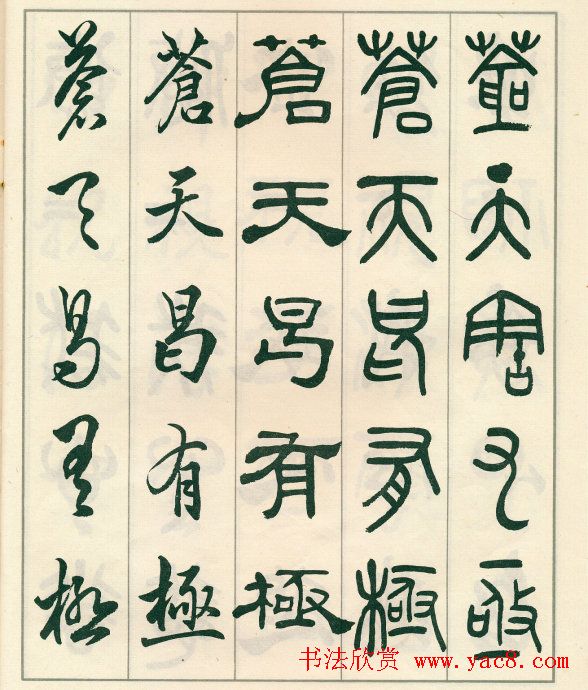 蒼天曷有極
蒼天曷有極
蒼天曷有極
蒼天曷有極
蒼天曷有極
书法欣赏 www.yac8.com